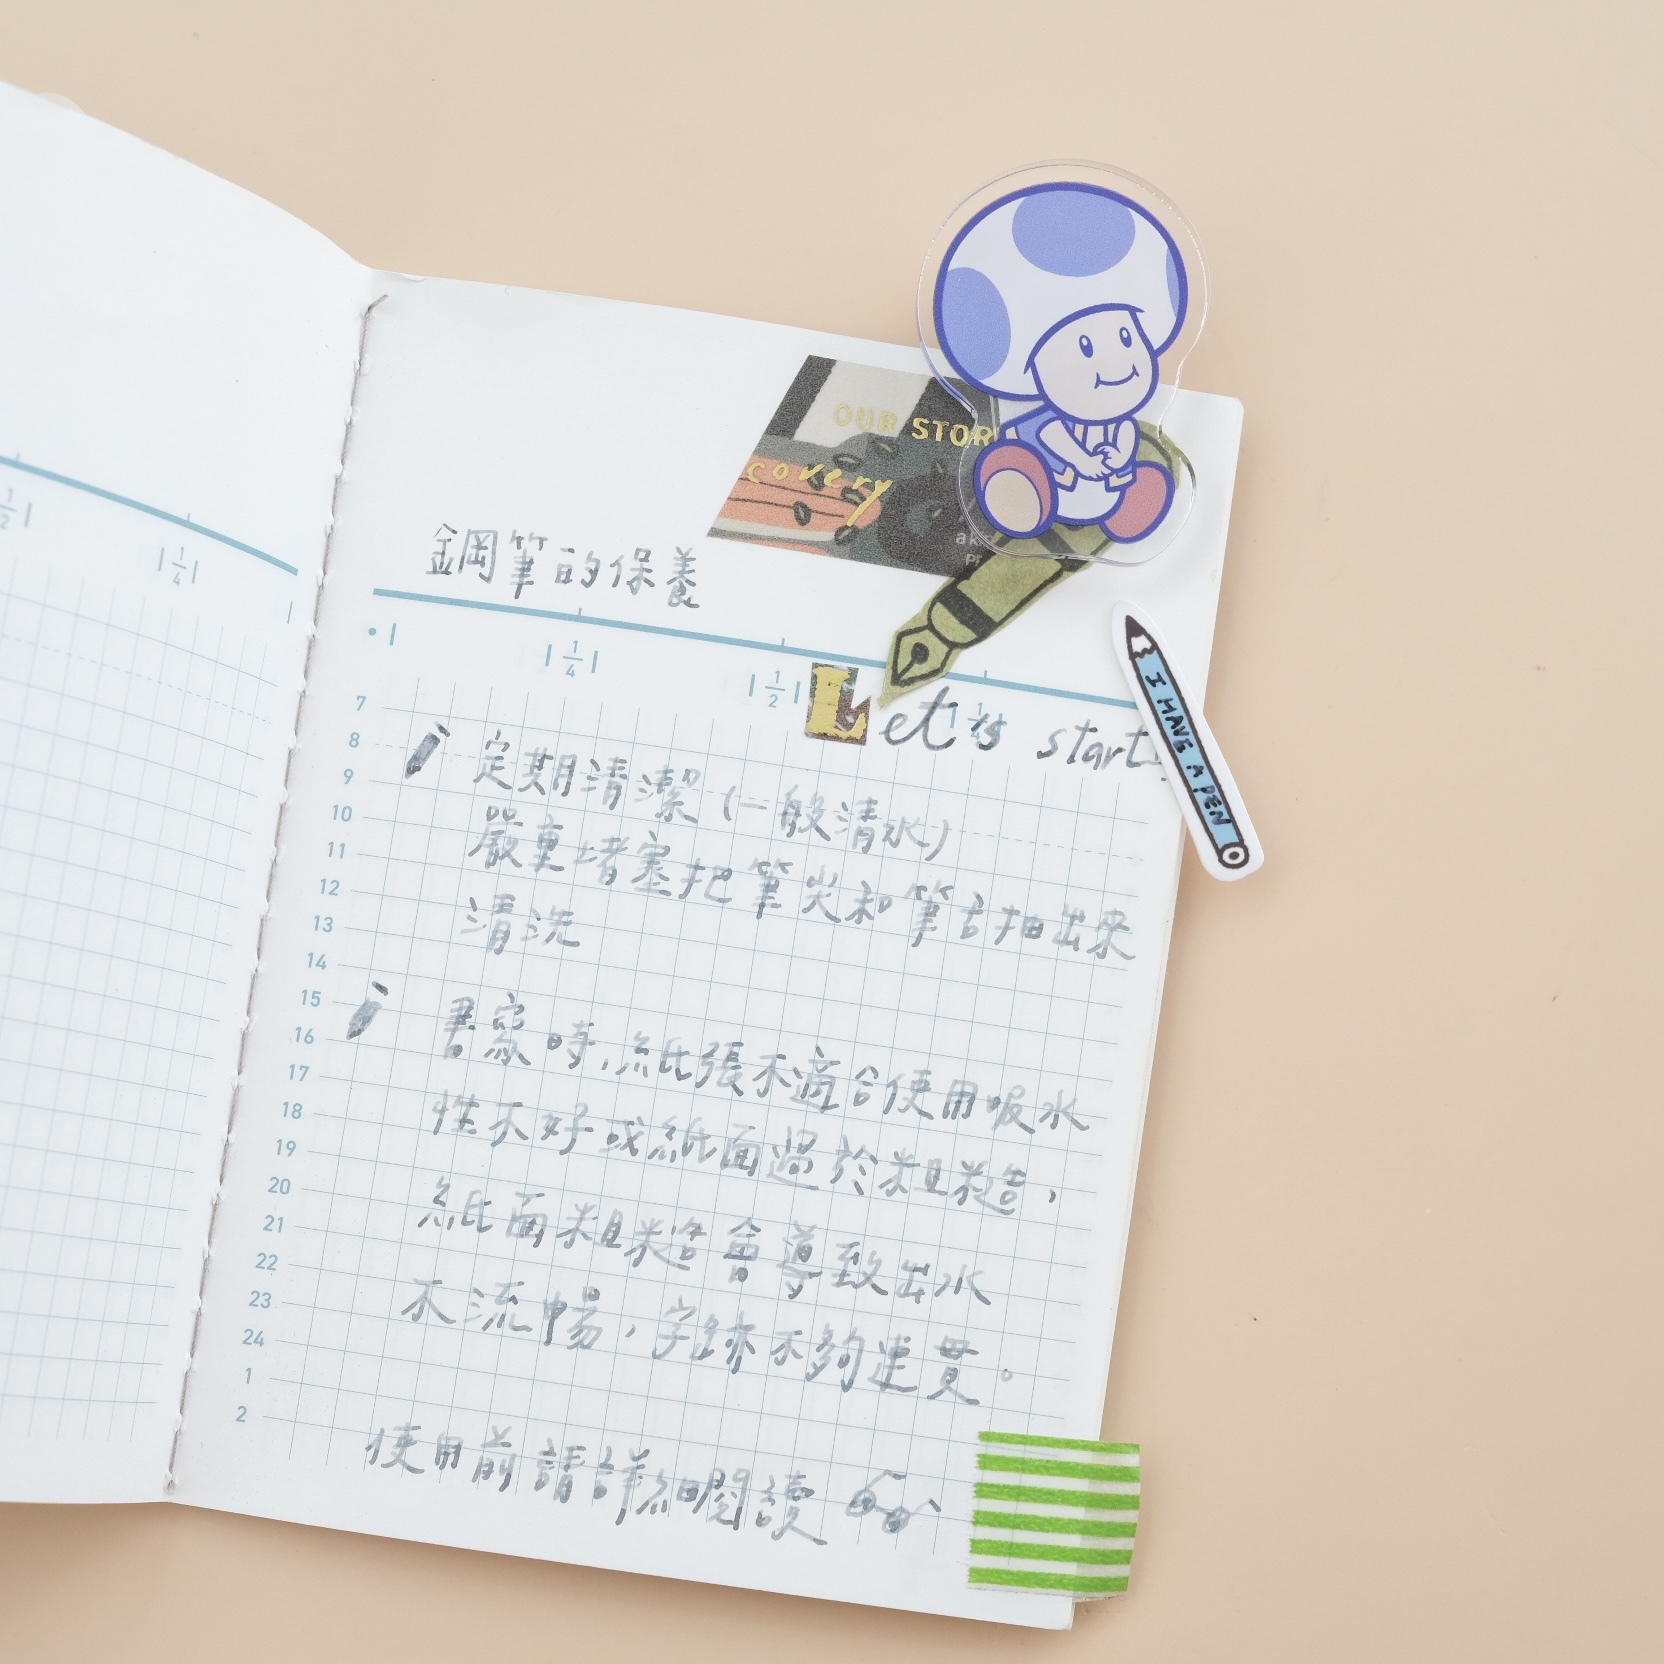 OUR STOR
covery
鋼筆的保養
1/4
1/2
1/4
Let's start!
I HAVE A PEN
7
8
9
10
11
12
13
14
15
16
17
18
19
20
21
22
23
24
1
2
定期清潔(一般清水)
嚴重堵塞把筆尖和筆舌抽出來
清洗
書寫時,紙張不適合使用吸水
性不好或紙面過於粗糙,
紙面粗糙會導致出水
不流暢,字跡不夠連貫。
使用前請詳細閱讀